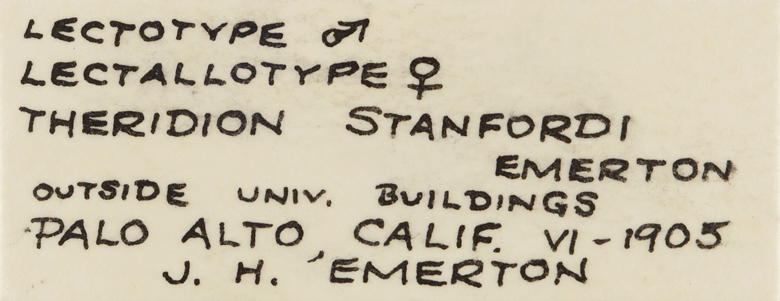 LECTOTYPE ♂
LECTALLOTYPE ♀
THERIDION STANFORDI
EMERTON
OUTSIDE UNIV. BUILDINGS
PALO ALTO, CALIF. VI-1905
J. H. EMERTON